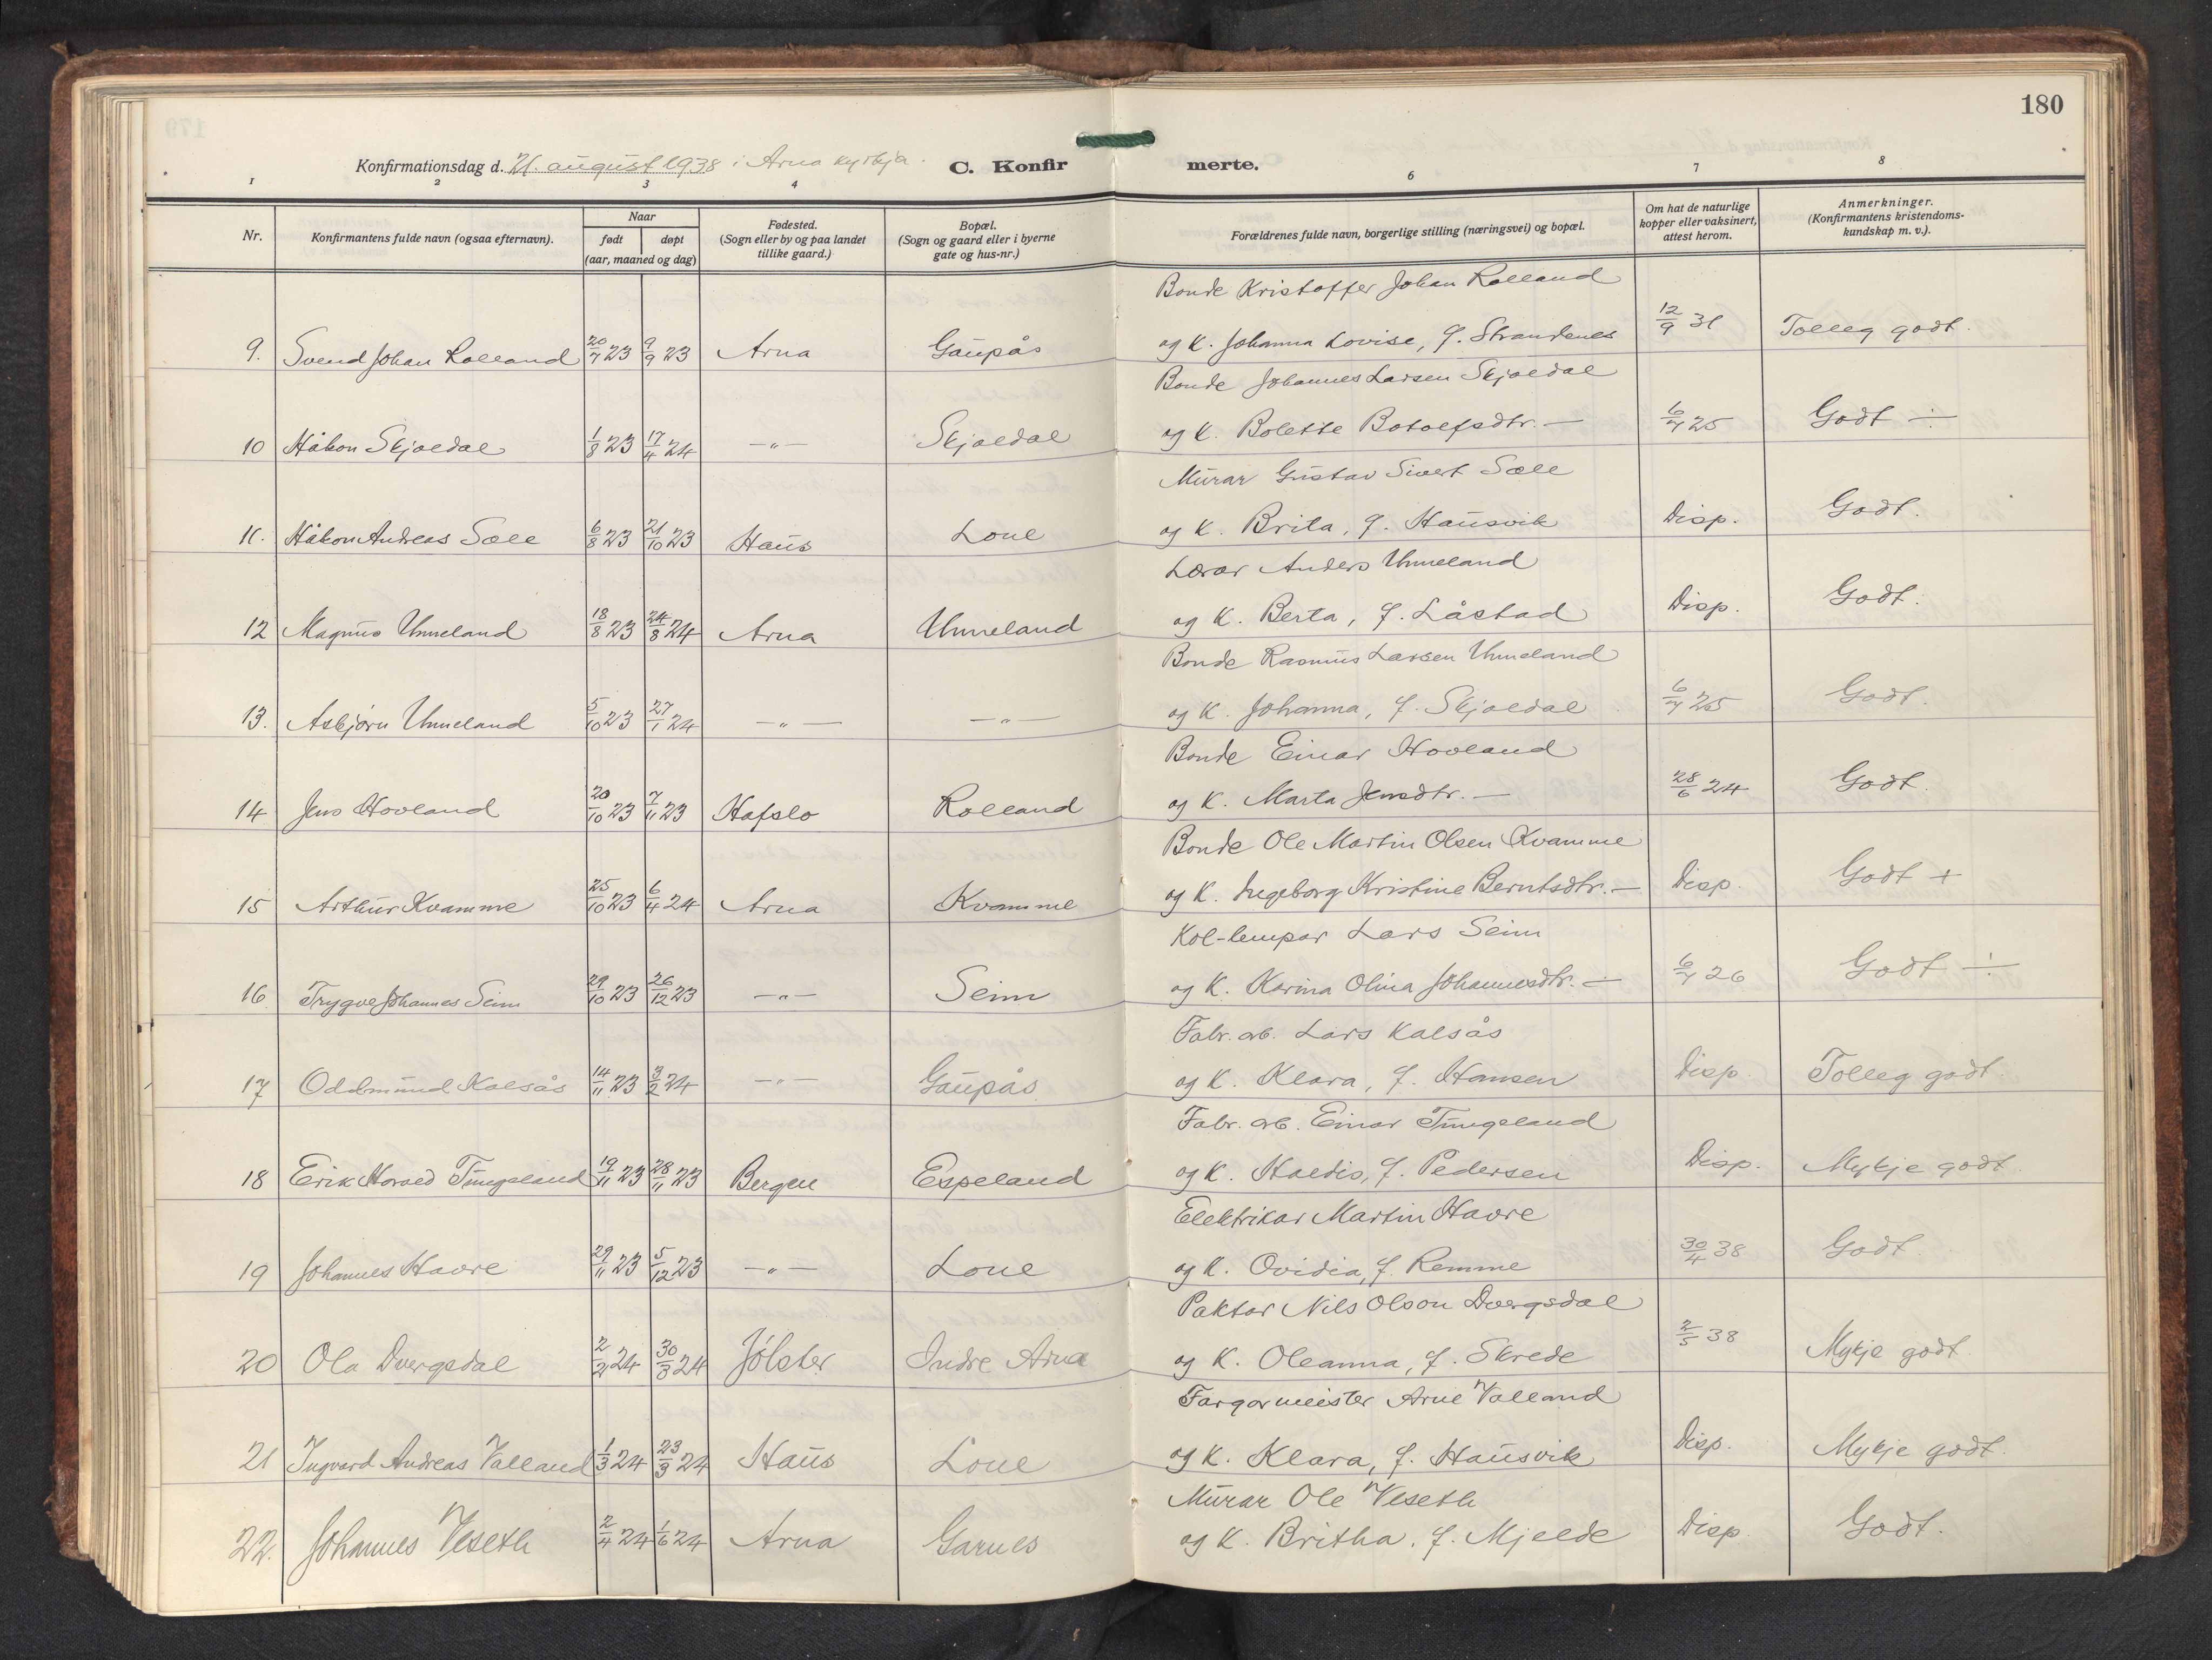 180
Konfirmationsdag d. 21. august 1938 i Arna kyrkja.
C. Konfirmerte.
1 2 3 4 6 7 8
Nr.
Konfirmantens fulde navn (ogsaa efternavn).
Naar
født døpt
(aar, maaned og dag)
Fødested.
(Sogn eller by og paa landet
tillike gaard.)
Bopæl.
(Sogn og gaard eller i byerne
gate og hus-nr.)
Forældrenes fulde navn, borgerlige stilling (næringsvei) og bopæl.
Om hat de naturlige
kopper eller vaksinert,
attest herom.
Anmerkninger.
(Konfirmantens kristendoms-
kundskap m. v.).
Bonde Kristoffer Johan Rolland
9. Svend Johan Rolland 20/7 23 9/9 23 Arna Gaupås og K. Johanna Lovise, f. Strandenes 12/9 31 Tolleg godt.
Bonde Johannes Larsen Skjældal
10 Håkon Skjældal 1/8 23 17/4 24 —"— Skjældal og K. Bolette Botolfsdtr. — 6/7 25 Godt ÷
Murar Gustav Sivert Sæle
11. Håkon Andreas Sæle 6/8 23 21/10 23 Haus Lone og K. Brita, f. Hausvik Disp. Godt.
Lærar Anders Unneland
12 Magnus Unneland 18/8 23 24/8 24 Arna Unneland og K. Berta, f. Låstad Disp. Godt.
Bonde Rasmus Larsen Unneland
13. Asbjørn Unneland 5/10 23 27/1 24 —"— —"— og K. Johanna, f. Skjældal 6/7 25 Godt.
Bonde Einar Hovland
14 Jens Hovland 20/10 23 7/11 23 Hafslo Rolland og K. Marta Jensdtr. — 28/6 24 Godt.
Bonde Ole Martin Olsen Kvamme
15 Arthur Kvamme 25/10 23 6/4 24 Arna Kvamme og K. Ingeborg Kristine Berntsdtr. — Disp. Godt +
Kol-lempar Lars Seim
16. Trygve Johannes Seim 29/10 23 26/12 23 —"— Seim og K. Karina Olina Johannesdtr. — 6/7 26 Godt ÷
Fabr. arb. Lars Kalsås
17 Oddmund Kalsås 14/11 23 3/2 24 —"— Gaupås og K. Klara, f. Hansen Disp. Tolleg godt.
Fabr. arb. Einar Tungeland
18 Erik Harald Tungeland 19/11 23 28/11 23 Bergen Espeland og K. Haldis, f. Pedersen Disp. Mykje godt
Elektrikar Martin Havre
19 Johannes Havre 29/11 23 5/12 23 —"— Lone og K. Ovidia, f. Remme 30/4 38 Godt
Paktar Nils Olson Dvergsdal
20 Ola Dvergsdal 2/2 24 30/3 24 Jølster Indre Arna og K. Oleanna, f. Skrede 2/5 38 Mykje godt
Fargarmeister Arne Valland
21 Ingvard Andreas Valland 1/3 24 23/3 24 Haus Lone og K. Klara, f. Hausvik Disp. Mykje godt.
Murar Ole Veseth
22. Johannes Veseth 2/4 24 1/6 24 Arna Garnes og K. Britha, f. Mjelde Disp. Godt.